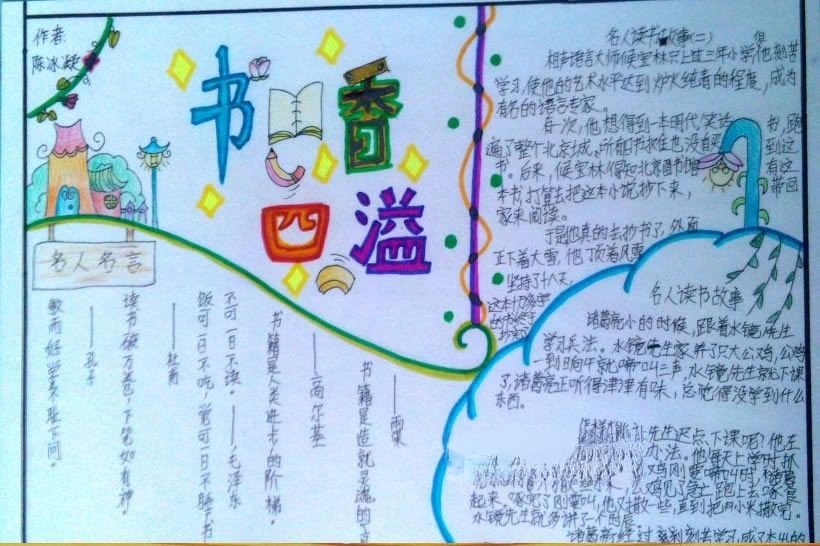 作者:
陈冰凝
书香
四溢
名人名言
敏而好学不耻下问。
——孔子
读书破万卷,下笔如有神。
——杜甫
饭可一日不吃,觉可一日不睡,书
不可一日不读。——毛泽东
书籍是人类进步的阶梯。
——高尔基
书籍是造就灵魂的
——雨果
名人读书故事(二)
相声语言大师侯宝林只上过三年小学,他刻苦
学习,使他的艺术水平达到炉火纯青的程度,成为
有名的语言专家。
有一次,他想得到一本明代笑话书,跑
遍了整个北京城所有旧书摊也没有买到这
书。后来,侯宝林得知北京图书馆有这
本书,打算去把这本小说抄下来,带回
家来阅读。
于是他真的去抄书了,外面
正下着大雪,他丁顶着风雪
坚持了十八天,
这本十万多字
的书终于
名人读书故事
诸葛亮小的时候,跟着水镜先生
学习兵法。水镜先生家养了只大公鸡,公鸡
一到晌午就呜叫三声,水镜先生就下课
了,诸葛亮正听得津津有味,总觉得没学到什么
东西。
怎样才能让先生迟点下课呢?他在
办法。他每天上学时,抓
鸡刚要鸣叫时,诸葛
鸡见了急忙跑上去啄食
起来,啄完了刚要叫,他又撒一些,直到把小米撒完。
水镜先生就多讲了一个
诸葛亮经过刻苦学习,成了